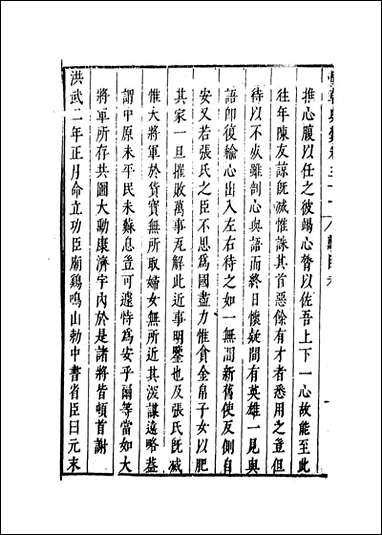 推心腹以任之彼竭心膂以佐吾上下一心故能至此
往年陳友諒旣滅惟誅其首惡餘有才者悉用之並但
待以不疑雖剖心與語而終日懷疑間有英雄一見與
語卽傾輸心出入左右待之如一無間新舊使反側自
安又若張氏之臣不思爲國盡力惟貪金帛子女以肥
其家一旦摧敗萬事瓦解此近事明鑒也及張氏旣滅
惟大將軍於貨寶無所取婦女無所近其深謀遠略蓋
謂中原未平民未蘇息豈可遽恃爲安乎爾等當如大
將軍所存共圖大勳康濟宇內於是諸將皆頓首謝
洪武二年正月命立功臣廟鷄鳴山勅中書省臣曰元末